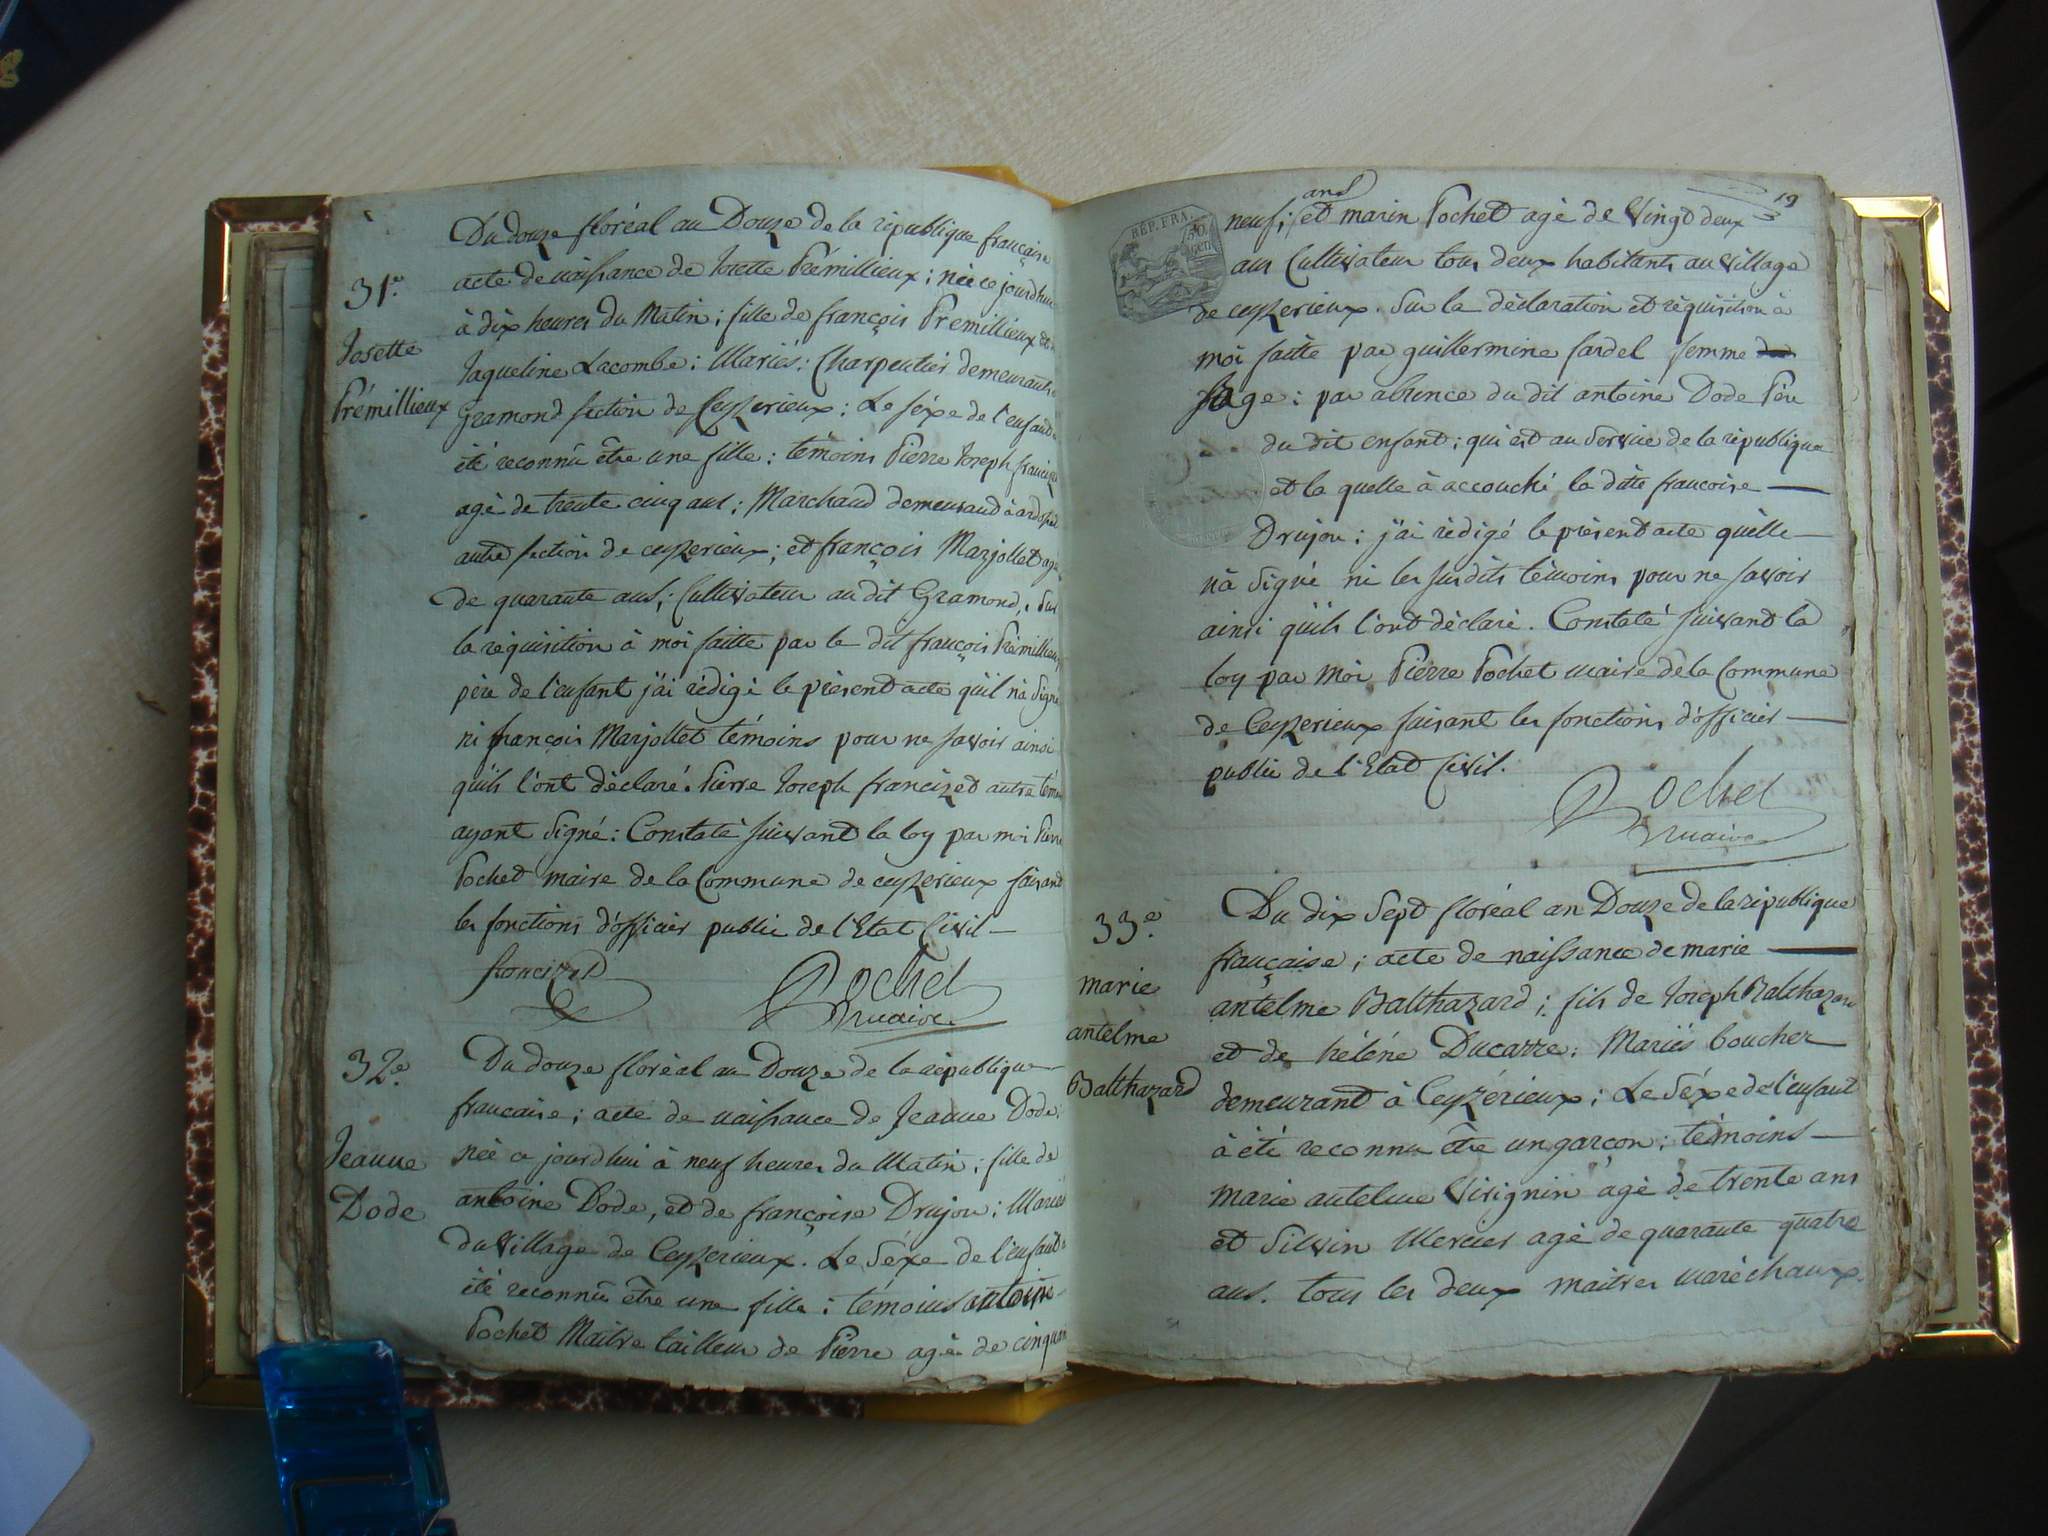 Du douze floréal an Douze de la république française
31.e
acte de naissance de Josette Prémillieux; née ce jourdhui
à dix heures du Matin; fille de françois Premillieux et de
Josette
Prémillieux
Jaqueline Lacombe: Mariés: Charpentier demeurant à
Gramond section de Ceyzerieux: Le séxe de l'enfant a
été reconnû être une fille: témoins Pierre Joseph francizet
agé de trente cinq ans; Marchand demeurand à
autre section de ceyzerieux; et françois Marjollet agé
de quarante ans; Cultivateur au dit Gramond. Sur
la réquisition à moi faitte par le dit françois Prémillieux
père de l'enfant j'ai rédigé le présent acte qu'il n'a Signé
ni françois Marjollet témoins pour ne savoir ainsi
qu'ils l'ont déclaré. Pierre Joseph francized autre témoin
ayant Signé: Constaté suivant la loy par moi Pierre
Pochet maire de la Commune de ceyzerieux faisant
les fonctions d'officier public de l'Etat Civil
francizet
Pochet
maire
32.e
Du douze floréal an Douze de la république
francaise; acte de naissance de Jeanne Dode;
Jeanne
Dode
née ce jourdhui à neuf heures du Matin; fille de
antoine Dode, et de françoise Drujon; Mariés
du Village de Ceyzerieux. Le Séxe de l'enfant a
été reconnû être une fille: témoins antoine
Pochet Maitre tailleur de Pierre agé de cinquante
19
REP. FRA.
50 cen
ans
neuf; et marin Pochet agé de Vingt deux
ans Cultivateur tous deux habitants au Village
de ceyzerieux. Sur la déclaration et réquisition à
moi faitte par guillermine fardel femme
sage: par absence du dit antoine Dode Père
du dit enfant; qui est au Service de la république
et la quelle à accouché la dite francoise
Drujon; j'ai rédigé le présent acte qu'elle
n'à Signé ni les susdits témoins pour ne savoir
ainsi qu'ils l'ont déclaré. Constaté suivant la
loy par moi Pierre Pochet maire de la Commune
de Ceyzerieux faisant les fonctions d'officier
public de l'Etat Civil.
Pochet
maire
33.e
Du dix Sept floréal an Douze de la république
française; acte de naissance de marie
marie
antelme
Balthazard
antelme Balthazard; fils de Joseph Balthazard
et de héléne Ducarre: Mariés boucher
demeurant à Ceyzérieux; Le Séxe de l'enfant
à été reconnu être un garçon; témoins
Marie antelme Virignin agé de trente ans
et Silvin Mercier agé de quarante quatre
ans. tous les deux maitres maréchaux.